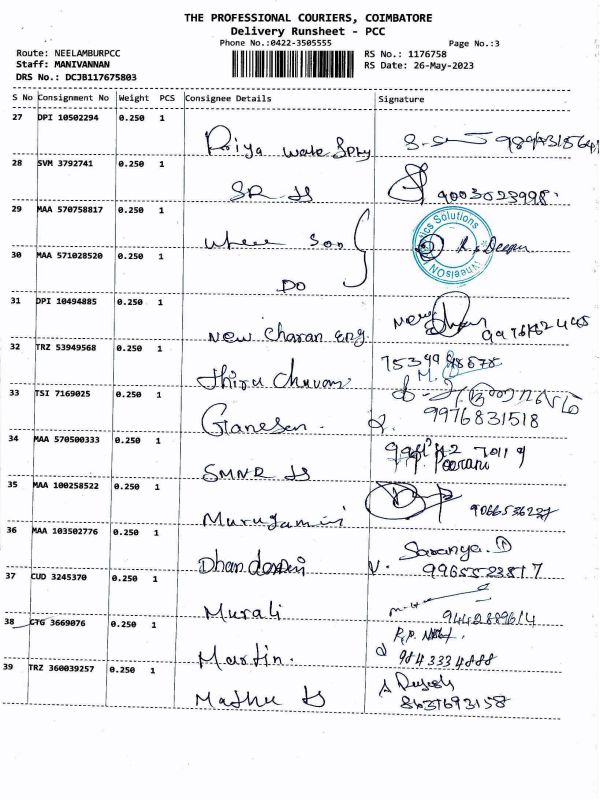 THE PROFESSIONAL COURIERS, COIMBATORE
Delivery Runsheet - PCC
Phone No.:0422-3505555
Page No.:3
Route: NEELAMBURPCC
RS No.: 1176758
Staff: MANIVANNAN
RS Date: 26-May-2023
DRS No.: DCJB117675803
S No Consignment No Weight PCS Consignee Details Signature
27 DPI 10502294 0.250 1
Priya
28 SVM 3792741 0.250 1
SR 9003023998
29 MAA 570758817 0.250 1
Wheel Son
Solutions
R. Deepan
30 MAA 571028520 0.250 1
DO
31 DPI 10494885 0.250 1
New Charan Eng.
32 TRZ 53949568 0.250 1
Thiru
33 TSI 7169025 0.250 1
Ganesan. 9976831518
34 MAA 570500333 0.250 1
SMNR
35 MAA 100258522 0.250 1
9066536227
36 MAA 103502776 0.250 1
Saranya.
37 CUD 3245370 0.250 1
Murali
38 CTG 3669076 0.250 1
Martin. 9843334888
39 TRZ 360039257 0.250 1
Mathu 8637693158